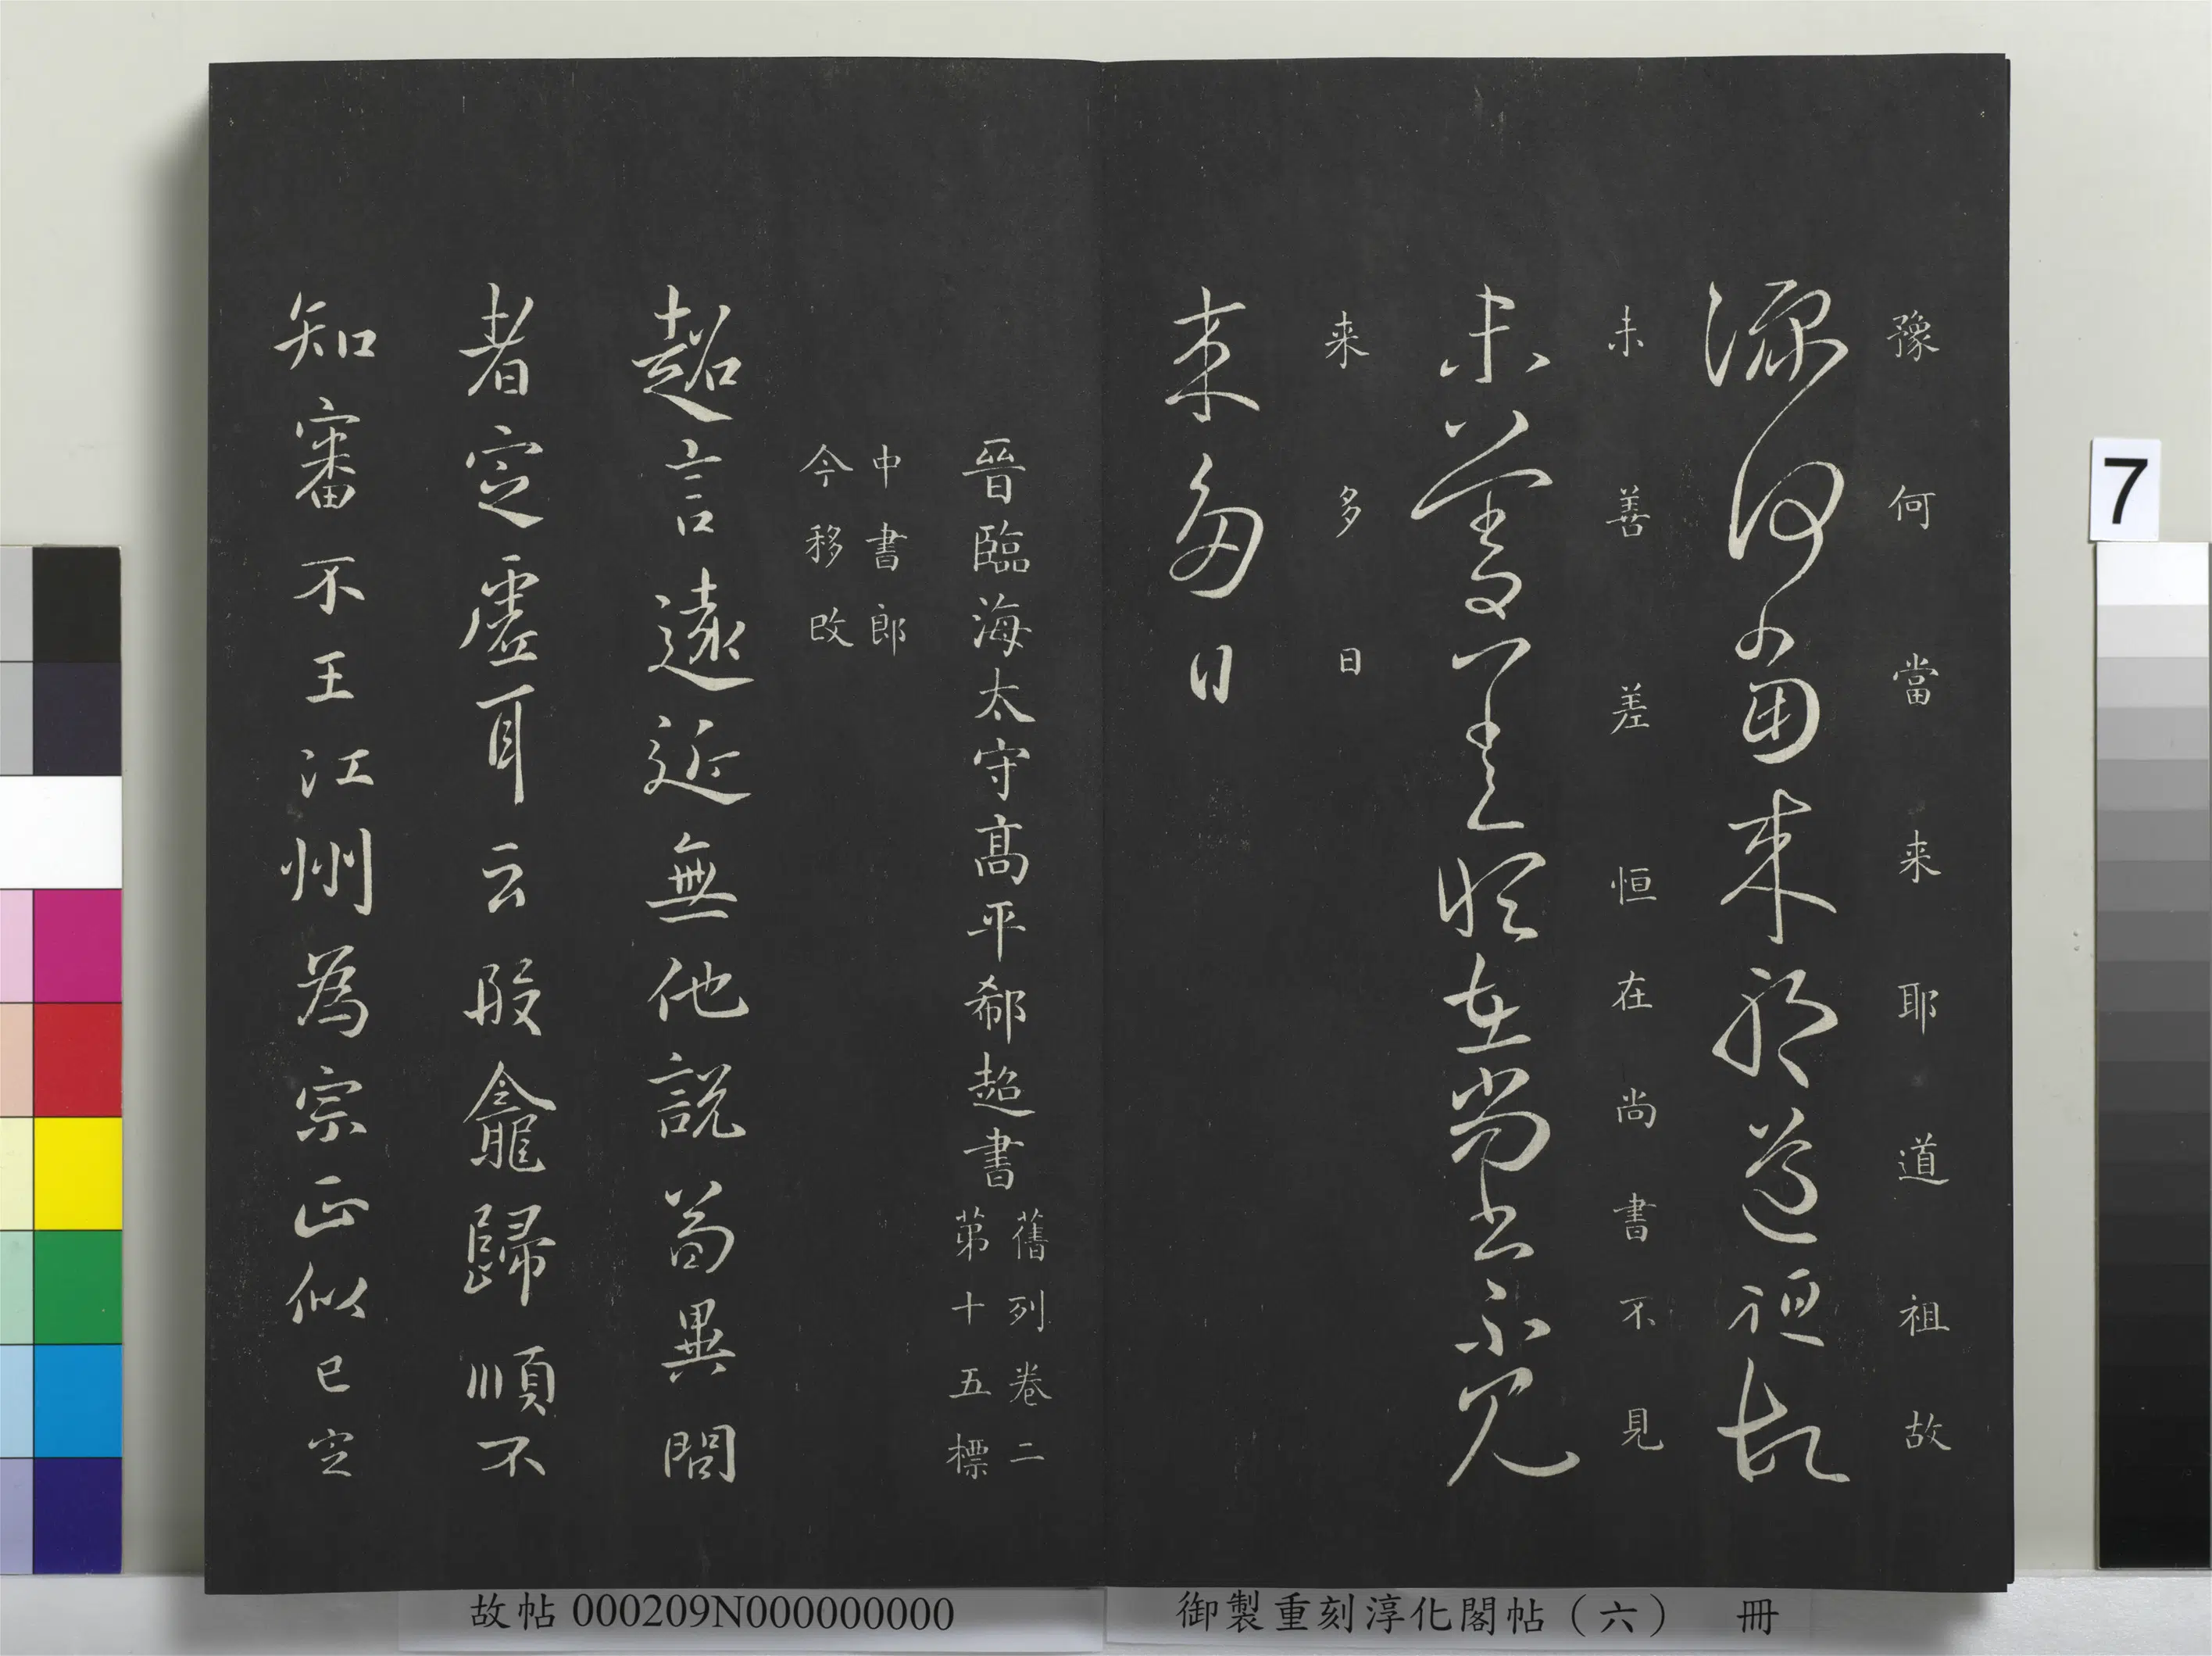 豫何當来耶道祖故
豫何當来耶道祖故
未善差恒在尚書不見
未善差恒在尚書不見
来多日
来多日
晉臨海太守高平郗超書
舊列卷二
第十五標
中書郎
今移改
超言遠近無他說首異問
者定虛耳云殷龕歸順不
知審不王江州為宗正似已定
7
故帖 000209N000000000
御製重刻淳化閣帖（六） 冊